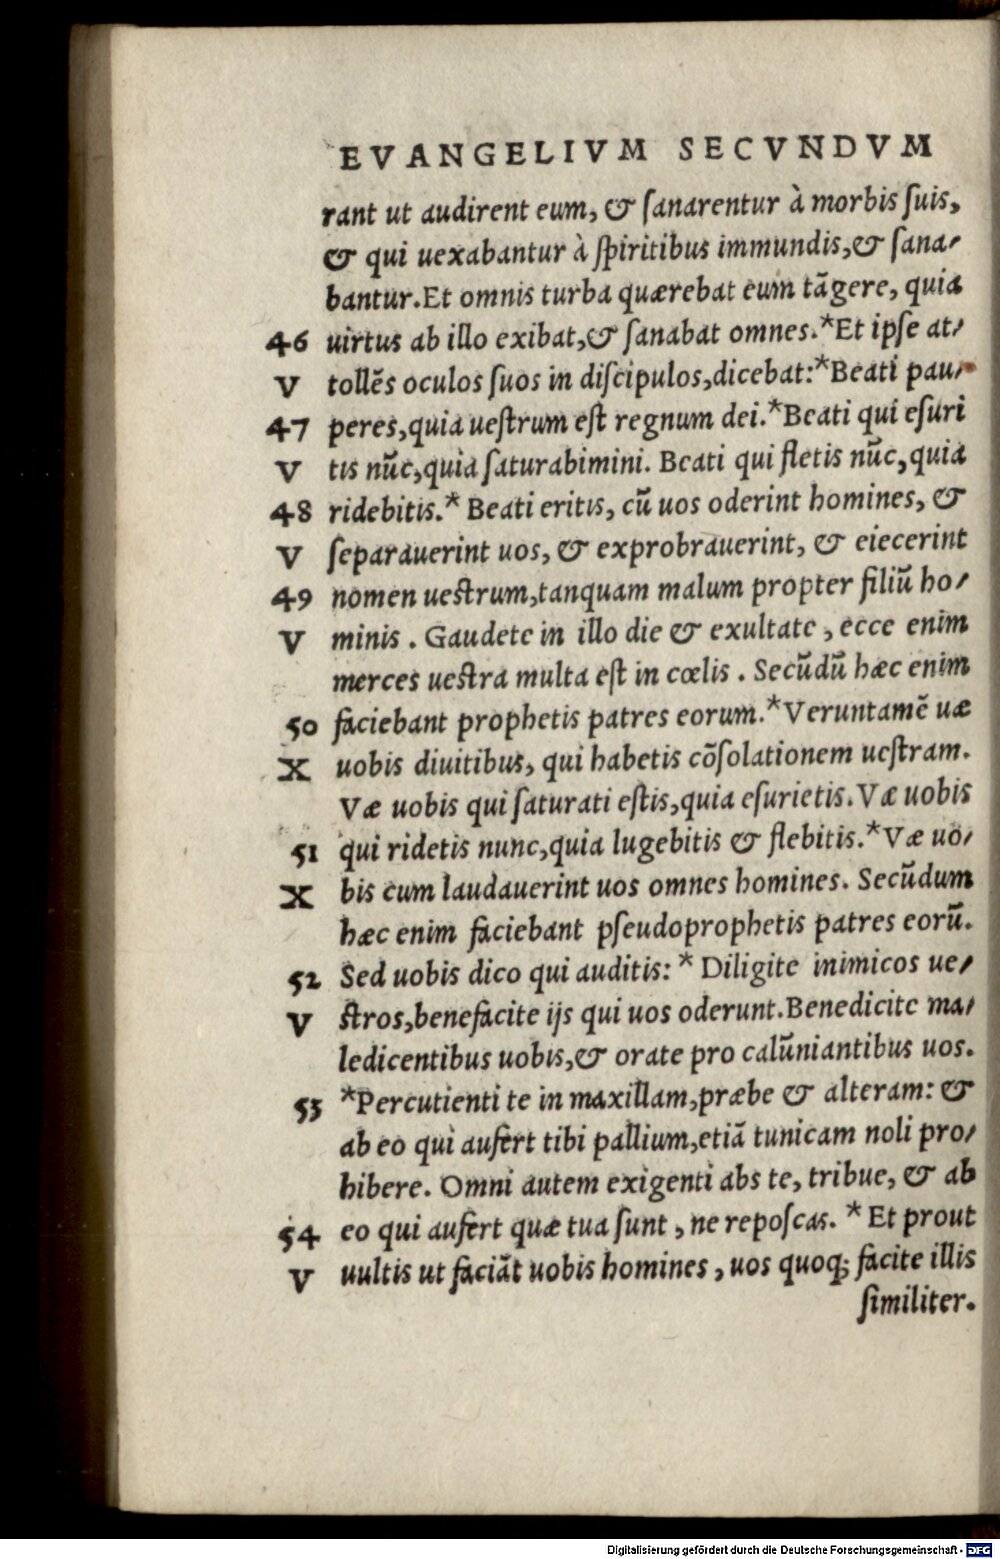 EVANGELIVM SECVNDVM
rant ut audirent eum, & sanarentur à morbis suis,
& qui uexabantur à spiritibus immundis,& sana/
bantur.Et omnis turba quærebat eum tãgere, quia
46 uirtus ab illo exibat,& sanabat omnes.*Et ipse at/
V tollẽs oculos suos in discipulos,dicebat:*Beati pau/
47 peres,quia uestrum est regnum dei.*Beati qui esuri
V tis nũc,quia saturabimini. Beati qui fletis nũc,quia
48 ridebitis.* Beati eritis, cũ uos oderint homines, &
V separauerint uos, & exprobrauerint, & eiecerint
49 nomen uestrum,tanquam malum propter filiũ ho/
V minis . Gaudete in illo die & exultate , ecce enim
merces uestra multa est in cœlis . Secũdũ hæc enim
50 faciebant prophetis patres eorum.*Veruntamẽ uæ
X uobis diuitibus, qui habetis cõsolationem uestram.
Væ uobis qui saturati estis,quia esurietis.Væ uobis
51 qui ridetis nunc,quia lugebitis & flebitis.*Væ uo/
X bis cum laudauerint uos omnes homines. Secũdum
hæc enim faciebant pseudoprophetis patres eorũ.
52 Sed uobis dico qui auditis: * Diligite inimicos ue/
V stros,benefacite ijs qui uos oderunt.Benedicite ma/
ledicentibus uobis,& orate pro calũniantibus uos.
53 *Percutienti te in maxillam,præbe & alteram: &
ab eo qui aufert tibi pallium,etiã tunicam noli pro/
hibere. Omni autem exigenti abs te, tribue, & ab
54 eo qui aufert quæ tua sunt , ne reposcas. * Et prout
V uultis ut faciãt uobis homines , uos quoq; facite illis
similiter.
Digitalisierung gefördert durch die Deutsche Forschungsgemeinschaft - DFG